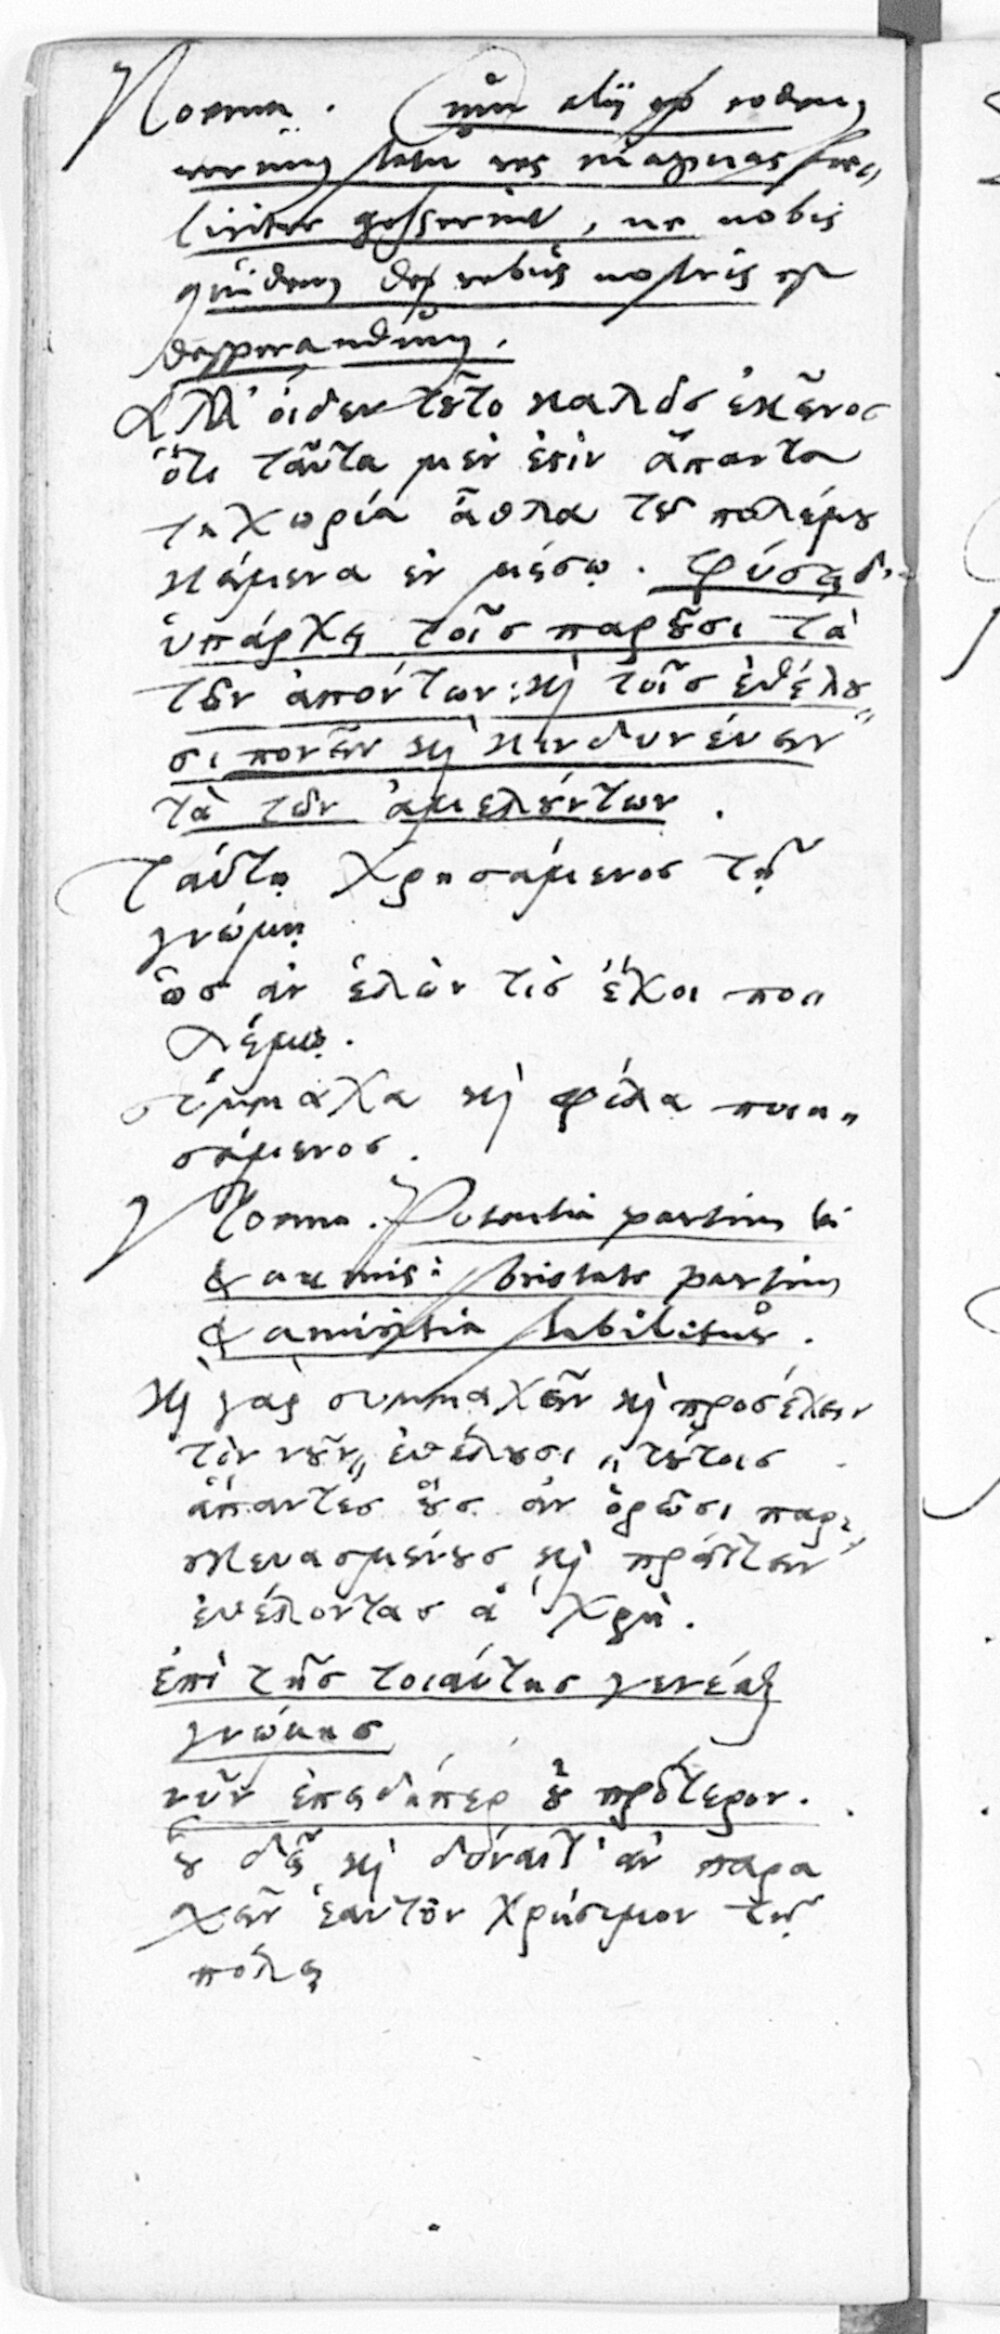 Noema. Cum alij eodem
rerum statu res magnas foe„
liciter gesserint, ne nobis
quidem de rebus nostris est
desperandum.
Ἀλλ' οἶδεν τοῦτο καλῶς ἐκεῖνος
ὅτι ταῦτα μέν ἐστιν ἅπαντα
τὰ χωρία ἆθλα τοῦ πολέμου
κείμενα ἐν μέσῳ. Φύσει δ'
ὑπάρχει τοῖς παροῦσι τὰ
τῶν ἀπόντων: καὶ τοῖς ἐθέλου„
σι πονεῖν καὶ κινδυνεύειν
τὰ τῶν ἀμελούντων.
Ταύτῃ χρησάμενος τῇ
γνώμῃ
ὡς ἂν ἑλών τις ἔχοι πο„
λέμῳ.
σύμμαχα καὶ φίλα ποιη„
σάμενος.
Noema. Potentia partim vi
& armis: partim
& amicitia stabilitur.
καὶ γὰρ συμμαχεῖν καὶ προσέχειν
τὸν νοῦν „ ἐθέλουσι „ τούτοις
ἅπαντες οὓς ἂν ὁρῶσι παρε„
σκευασμένους καὶ πράττειν
ἐθέλοντας ἃ χρή.
ἐπὶ τῆς τοιαύτης γενέσθαι
γνώμης
νῦν ἐπειδήπερ οὐ πρότερον.
οὗ δεῖ καὶ δύναιτ' ἂν παρα
χεῖν ἑαυτὸν χρήσιμον τῇ
πόλει